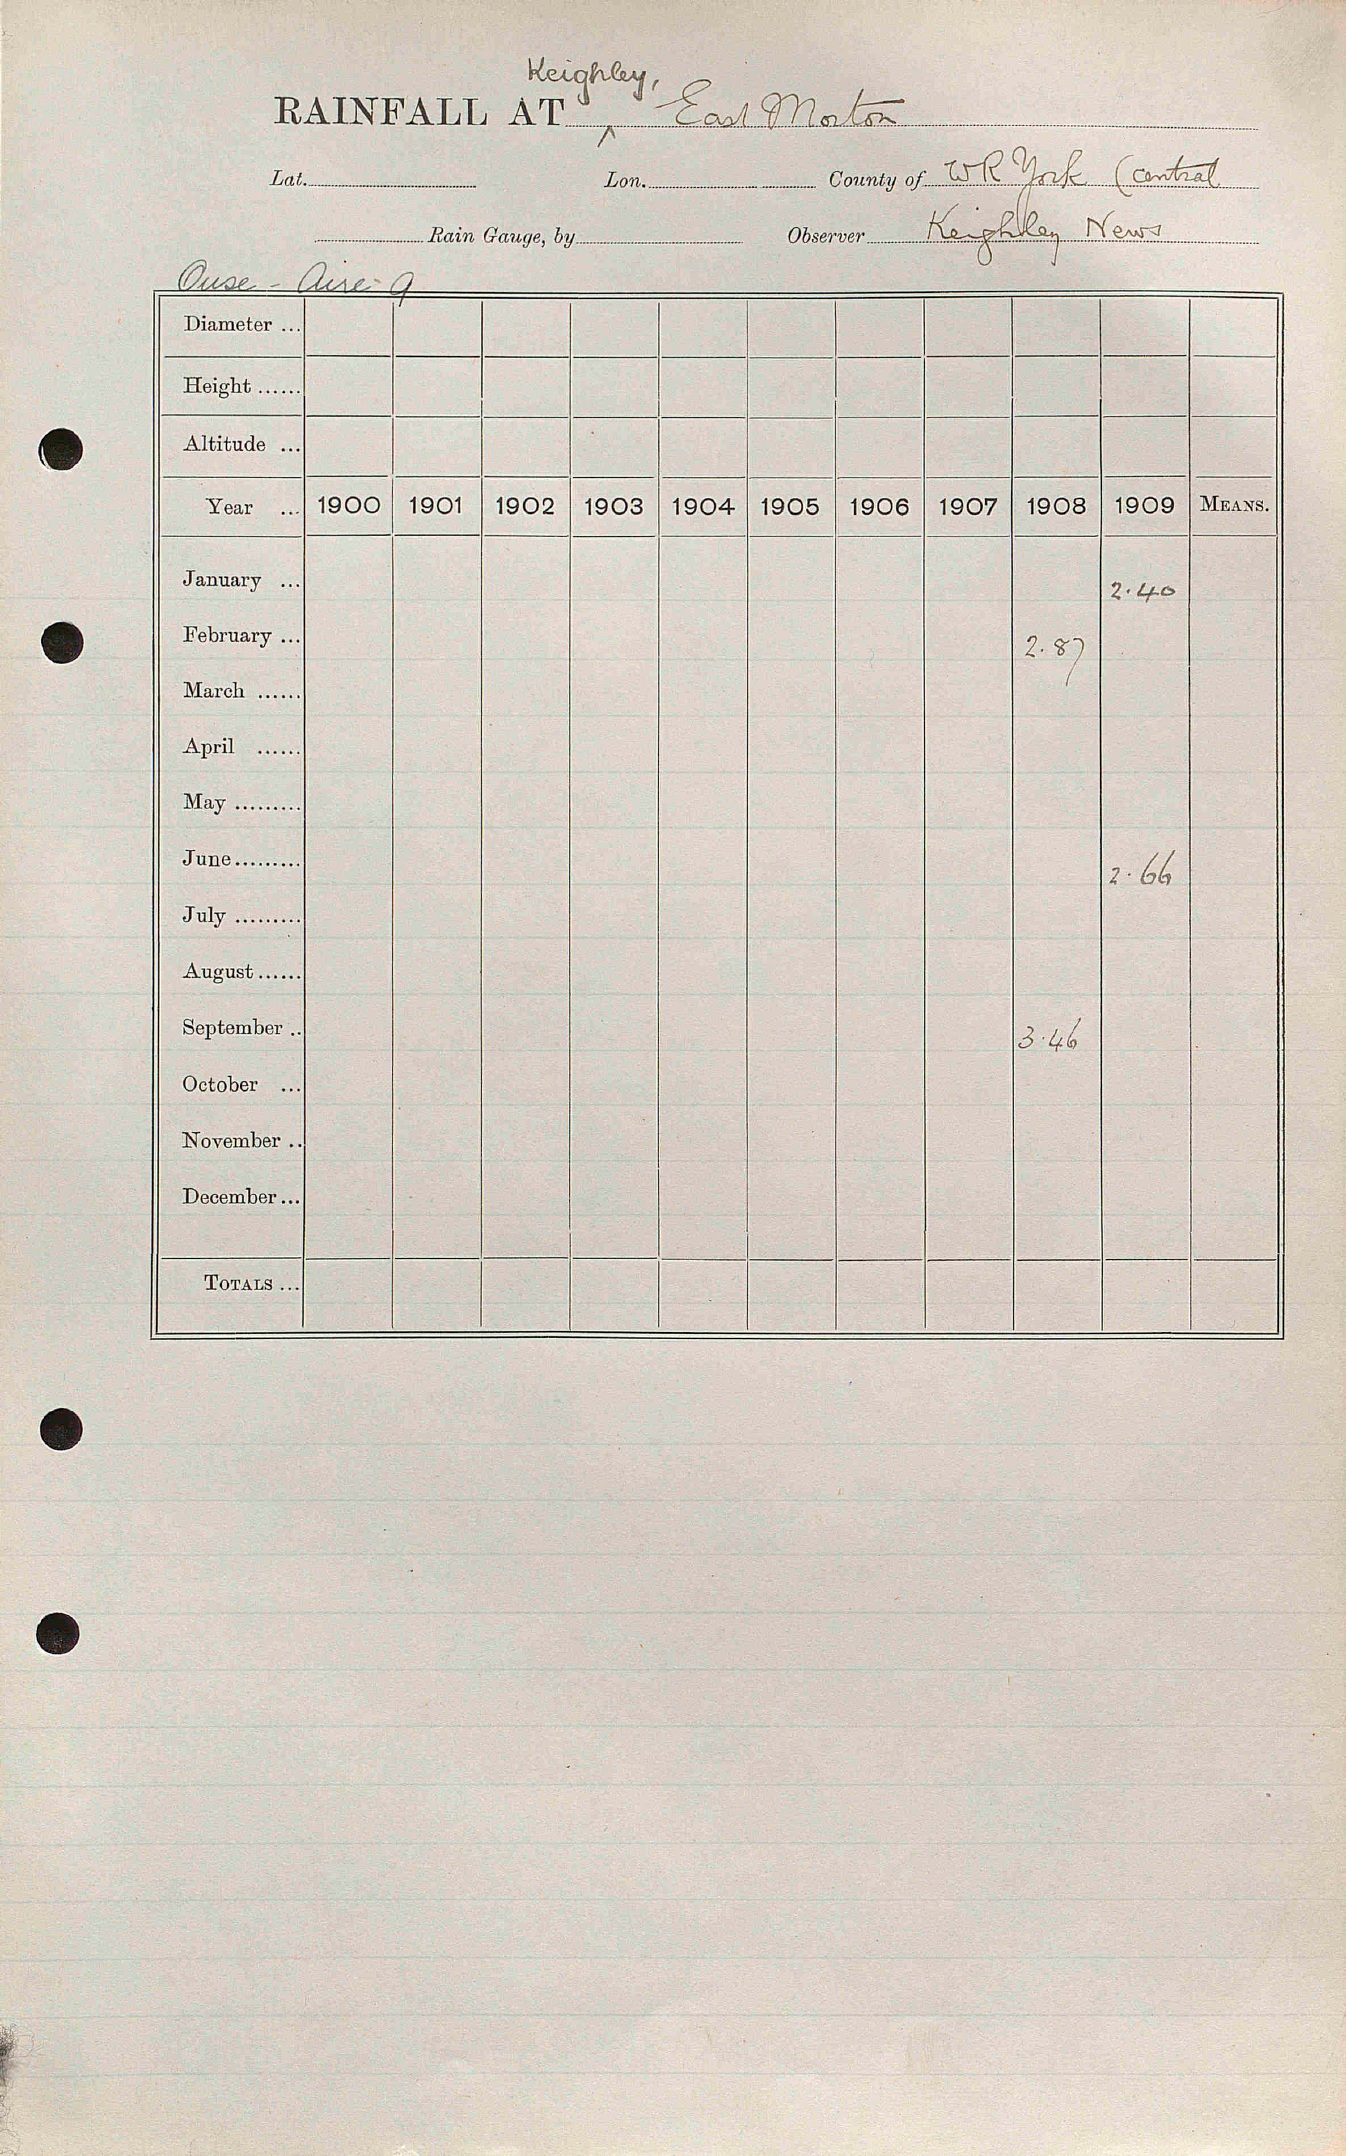 Keighley,
RAINFALL AT East Morton
Lat. Lon. County of WR York (Central
Rain Gauge, by Observer Keighley News
Ouse - Aire - 9
Diameter ...
Height ......
Altitude ...
Year ... 1900 1901 1902 1903 1904 1905 1906 1907 1908 1909 MEANS.
January ... 2.40
February ... 2.87
March ......
April ......
May .........
June ......... 2.66
July .........
August ......
September .. 3.46
October ...
November ..
December ...
TOTALS ...